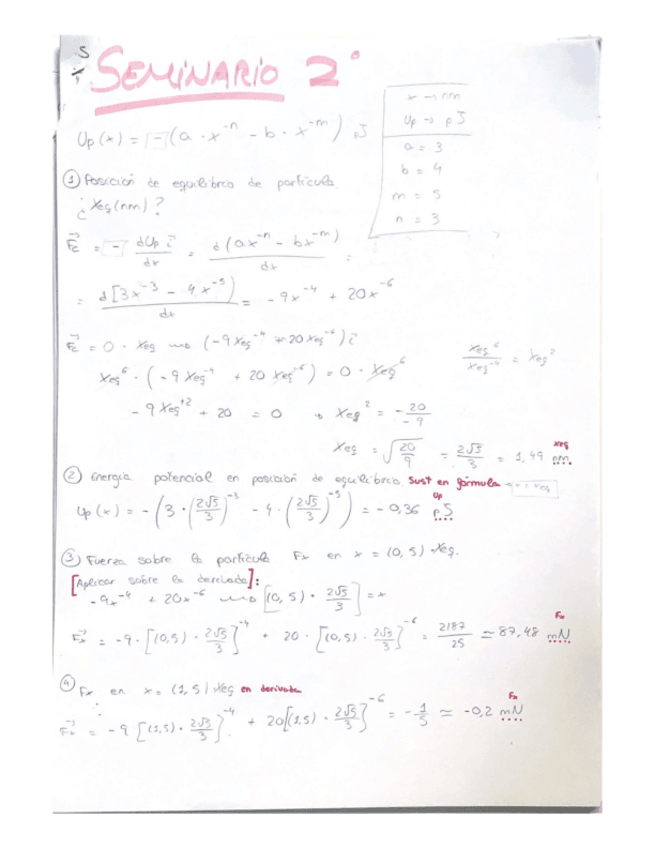 SEMINARIO 2º
x → nm
Up → pJ
a = 3
b = 4
m = 5
n = 3
Up (x) = -(a · x^-n - b · x^-m) pJ
① Posición de equilibrio de partícula.
¿Xeq (nm)?
Fc = - dUp/dx i = d(ax^-n - bx^-m)/dx =
= d[3x^-3 - 4x^-5)/dx = -9x^-4 + 20x^-6
Fc = 0 · Xeq → (-9Xeq^-4 + 20Xeq^-6) i
Xeq^6 · (-9Xeq^-4 + 20Xeq^-6) = 0 · Xeq^6
Xeq^6/Xeq^-4 = Xeq^2
-9Xeq^+2 + 20 = 0 → Xeq^2 = -20/-9
Xeq = √20/9 = 2√5/3 = 1,49 nm
Xeq
② Energía potencial en posición de equilibrio. Sust en fórmula → x = xeq
Up (x) = -(3 · (2√5/3)^-3 - 4 · (2√5/3)^-5) = -0,36 pJ
Up
③ Fuerza sobre la partícula Fx en x = (0,5) Xeq.
[Aplicar sobre la derivada]:
-9x^-4 + 20x^-6 → [(0,5) · 2√5/3] = x
Fx = -9 · [(0,5) · 2√5/3]^-4 + 20 · [(0,5) · 2√5/3]^-6 = 2187/25 ≃ 87,48 mN
Fx
④ Fx en x = (1,5) Xeq en derivada
Fx = -9 [(1,5) · 2√5/3]^-4 + 20[(1,5) · 2√5/3]^-6 = -1/5 ≃ -0,2 mN
Fx